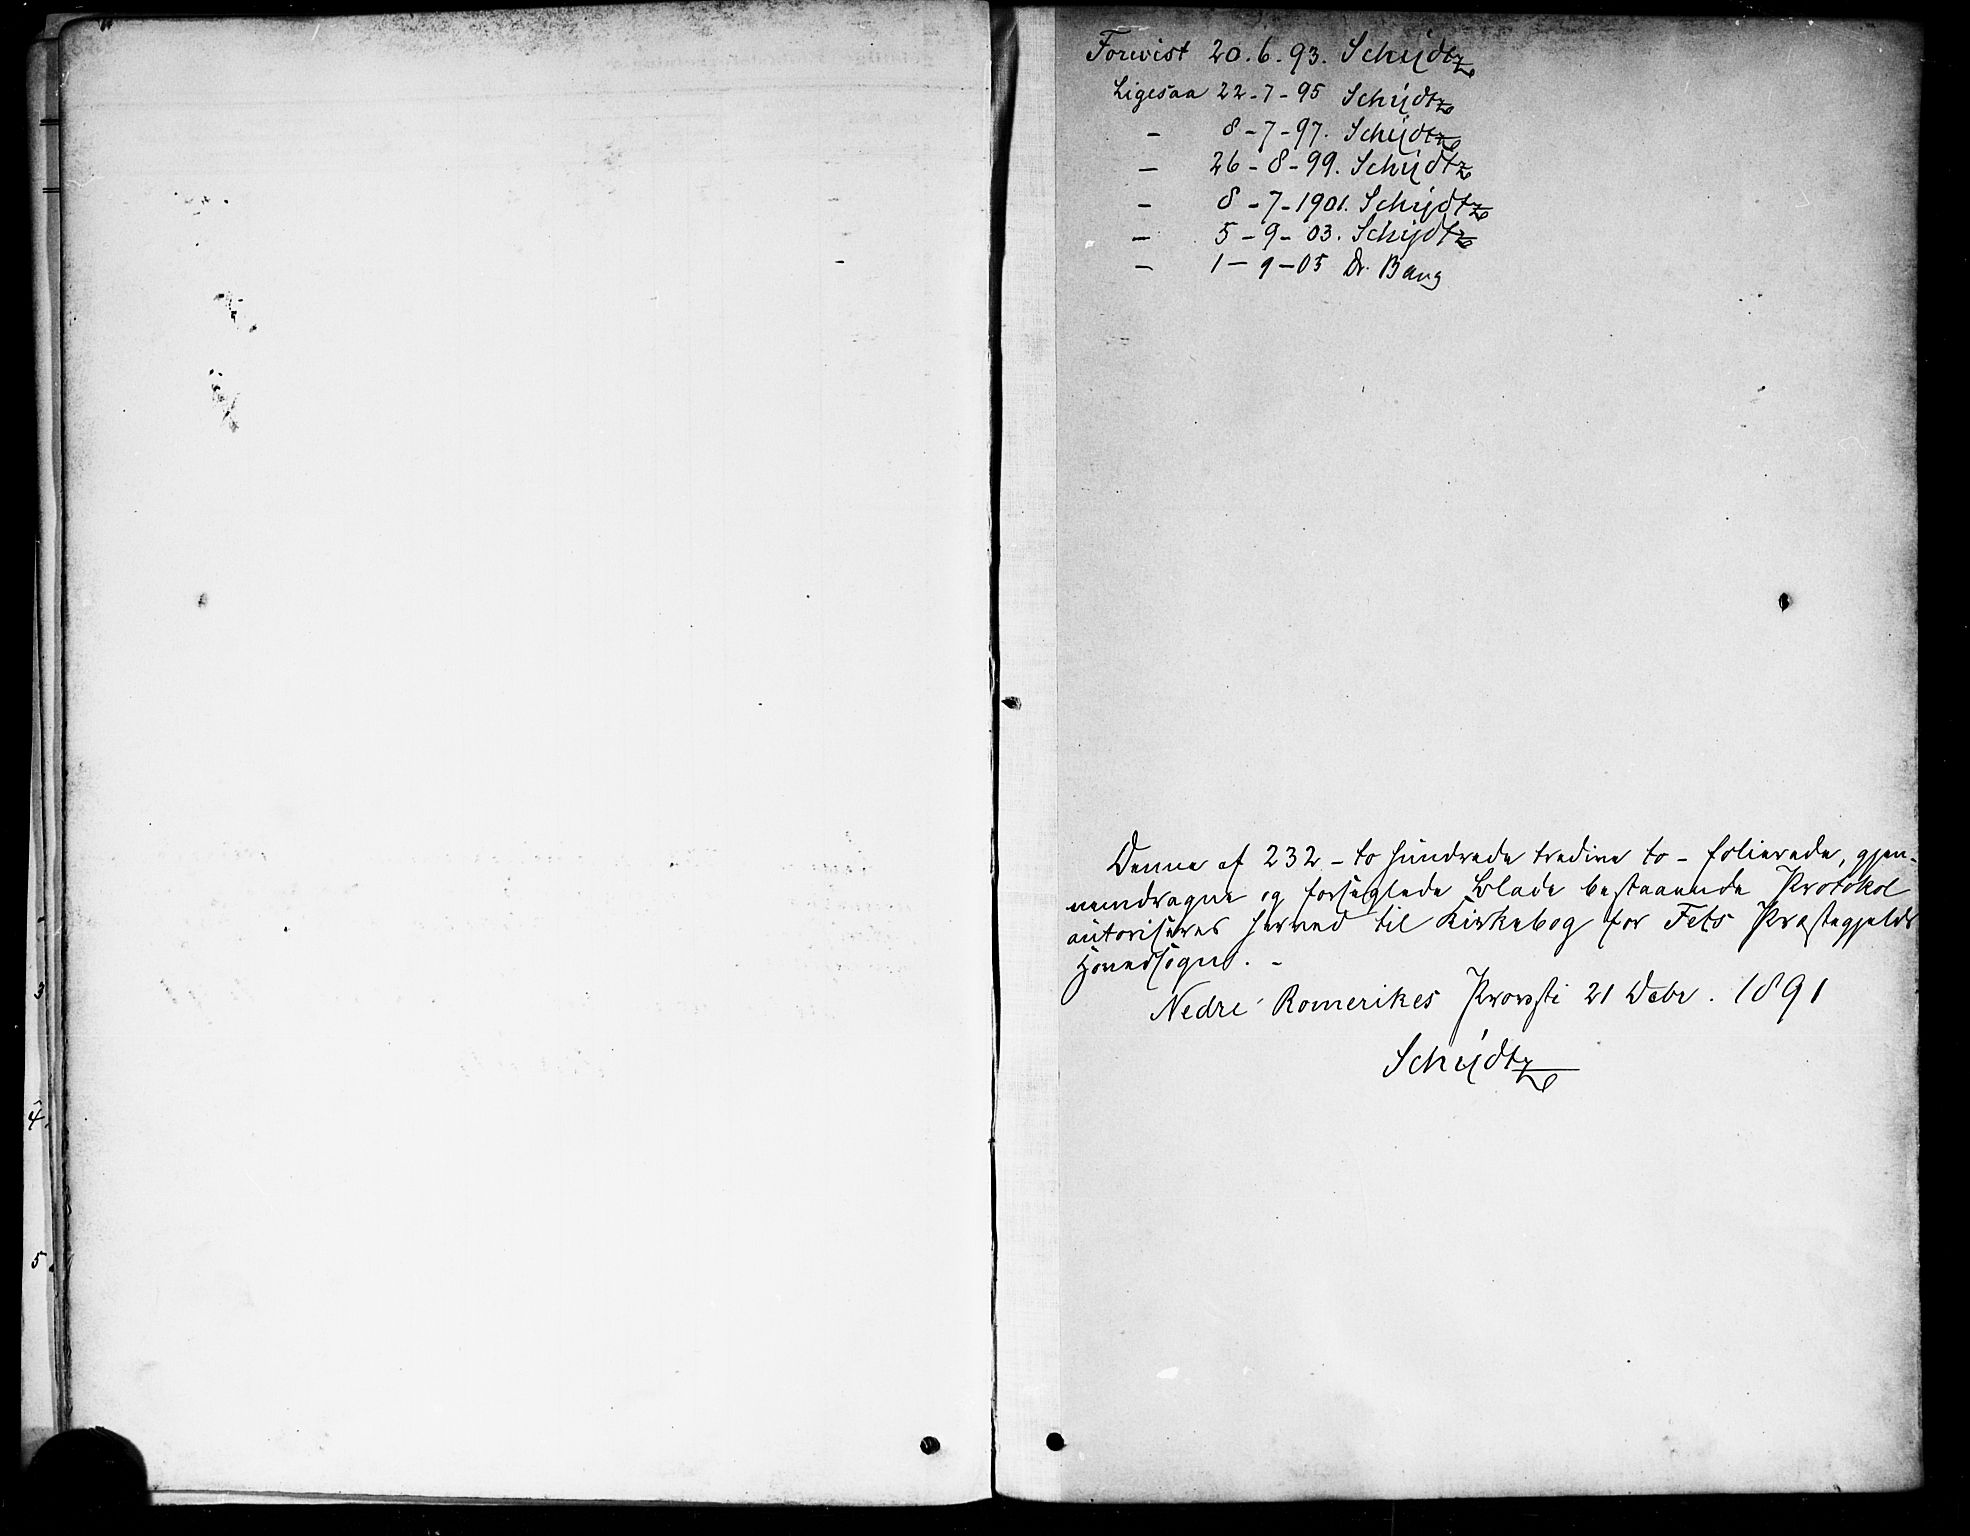 Forevist 20.6.93. Schijdtz
Ligesaa 22-7-95 Schijdtz
- 8-7-97. Schijdtz
- 26-8-99. Schijdtz
- 8-7-1901. Schijdtz
- 5-9-03. Schijdtz
- 1-9-05 Dr. Bang
Denne af 232 - to hundrede tredive to - folierede, gjen-
nemdragne og forseglede Blade bestaaende Protokol
autoriseres herved til Kirkebog for Fets Præstegjelds
Hovedsogn. -
Nedre Romerikes Provsti 21 Decbr. 1891
Schijdtz
3
4.
5.